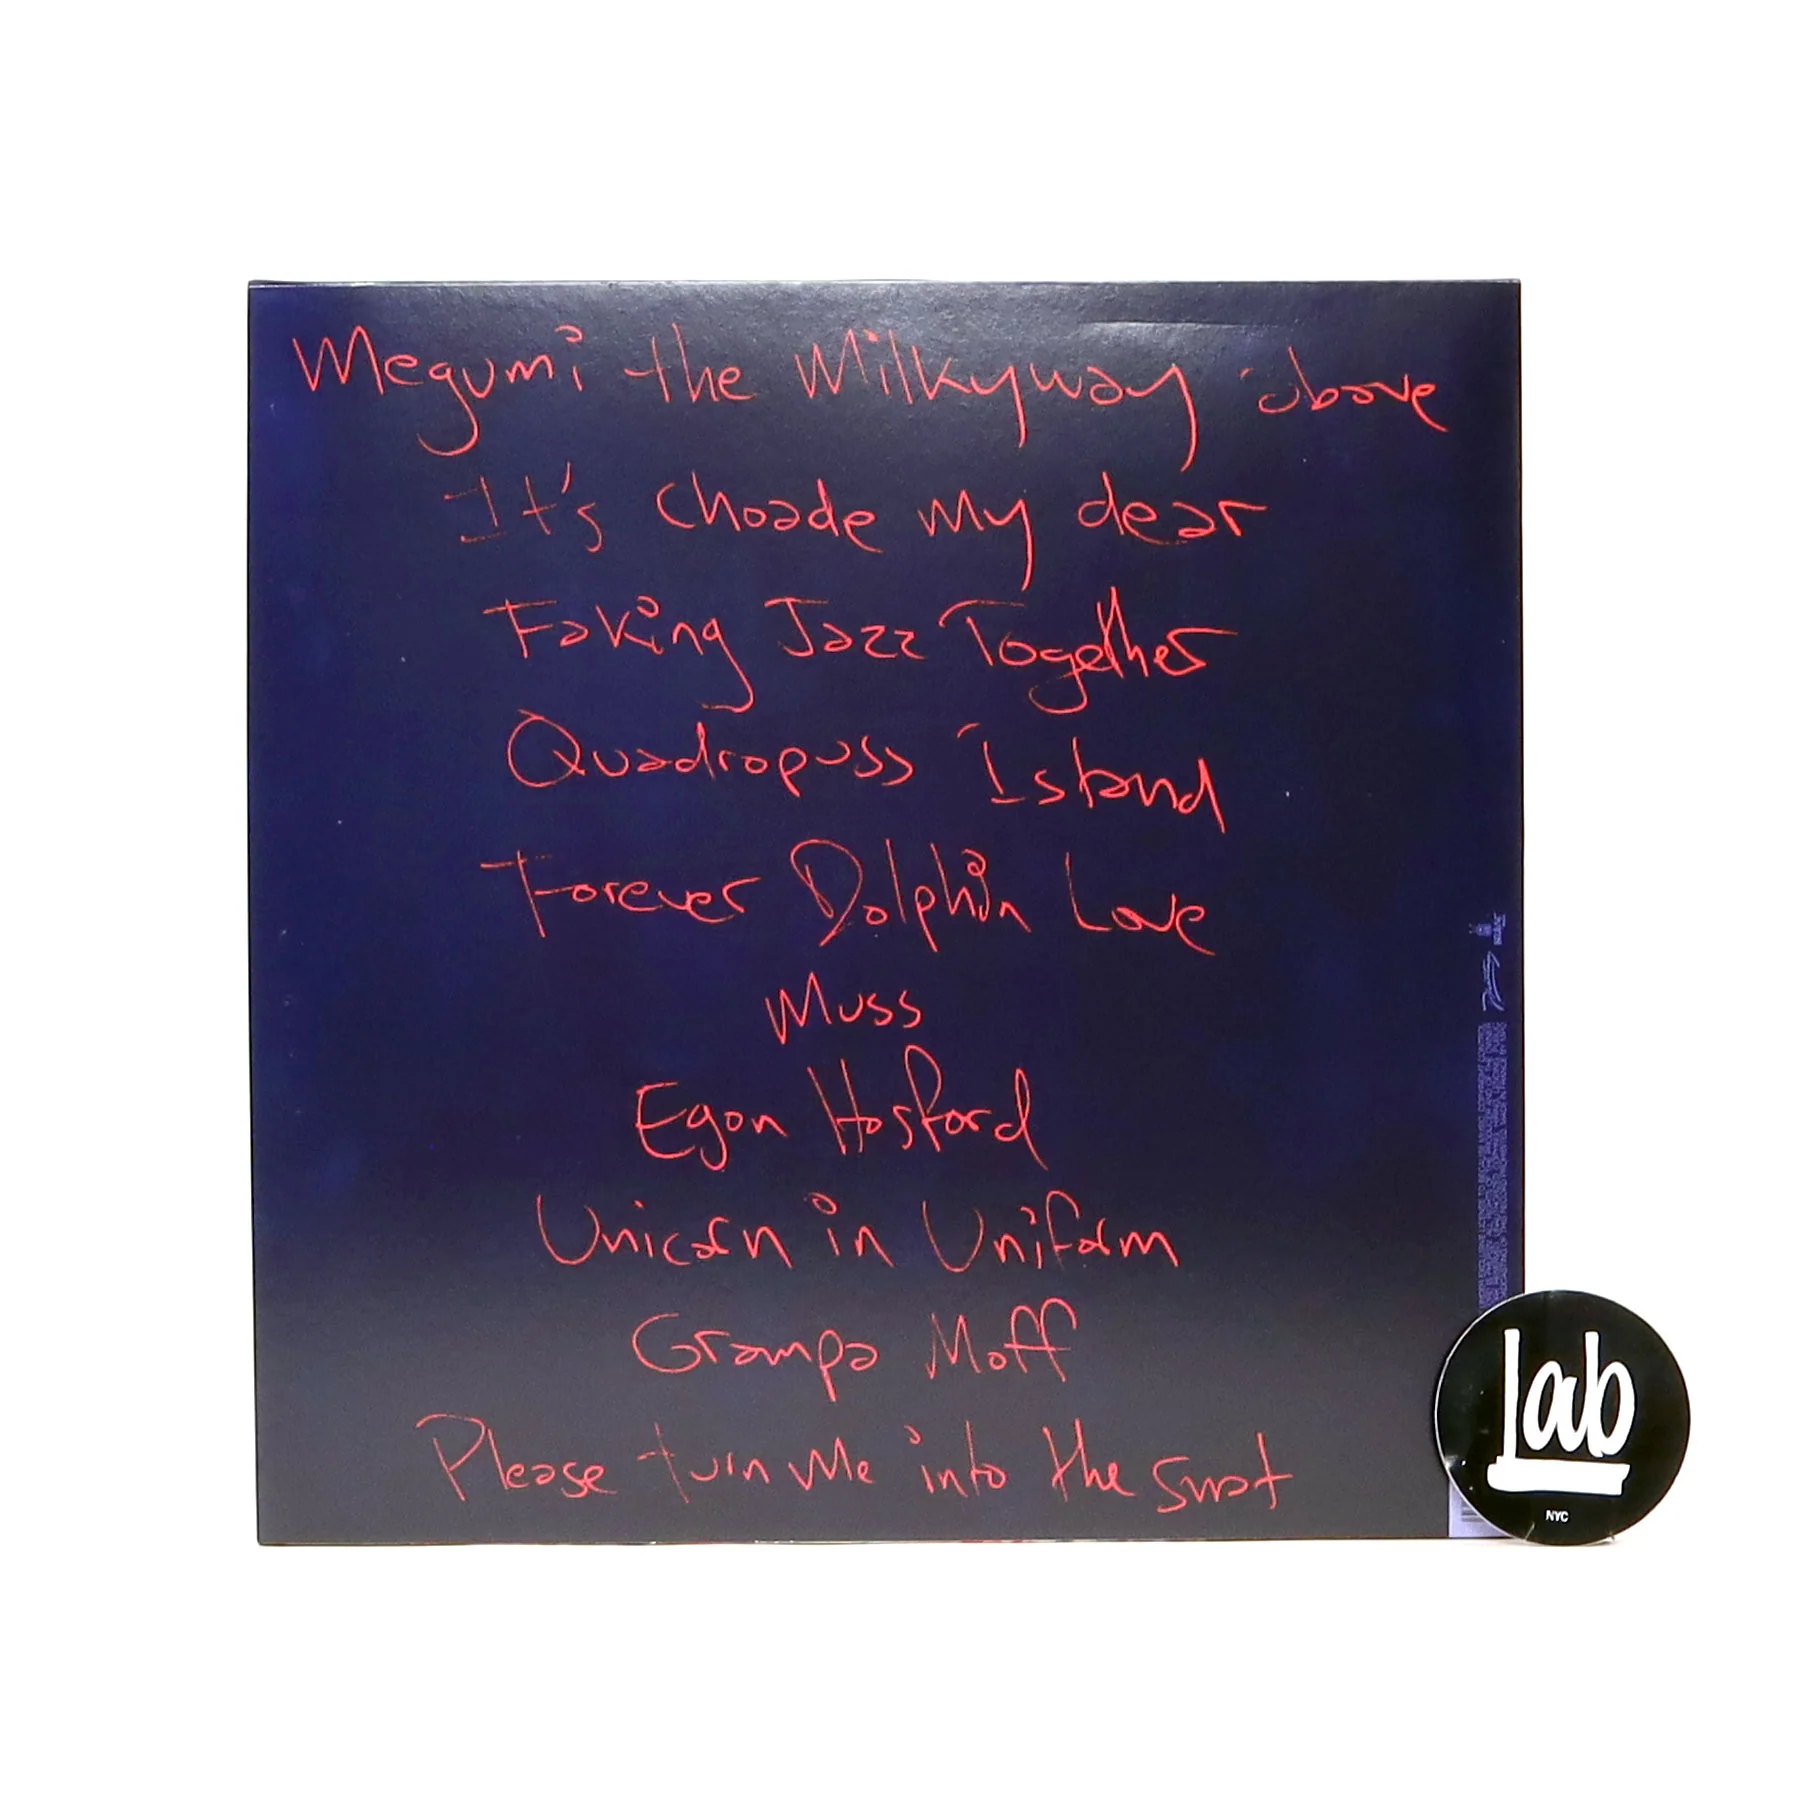 Megumi the Milkyway above
It's Choade my dear
Faking Jazz Together
Quadropuss Island
Forever Dolphin Love
Muss
Egon Hosford
Unicorn in Uniform
Grampa Moff
Please turn Me into the Snat
Lab
NYC